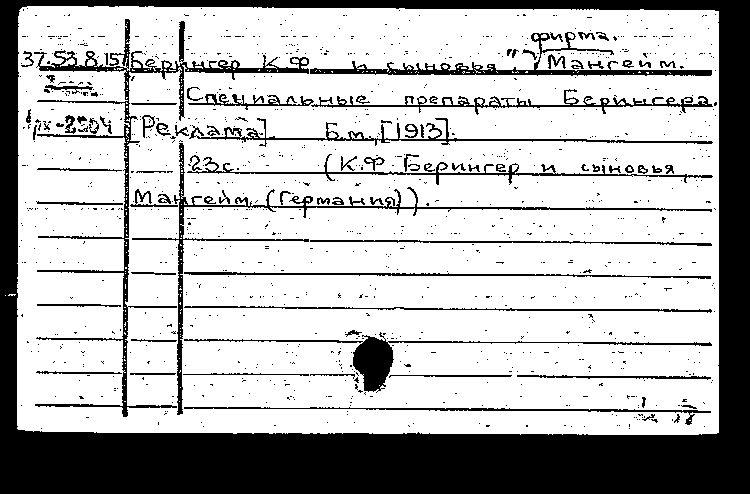 фирма.
37.53.8.15 Берингер К.Ф. и сыновья", Мангейм.
Специальные препараты Берингера.
[Реклама]. Б.м., [1913].
23с. (К.Ф. Берингер и сыновья,
Мангейм (Германия)).